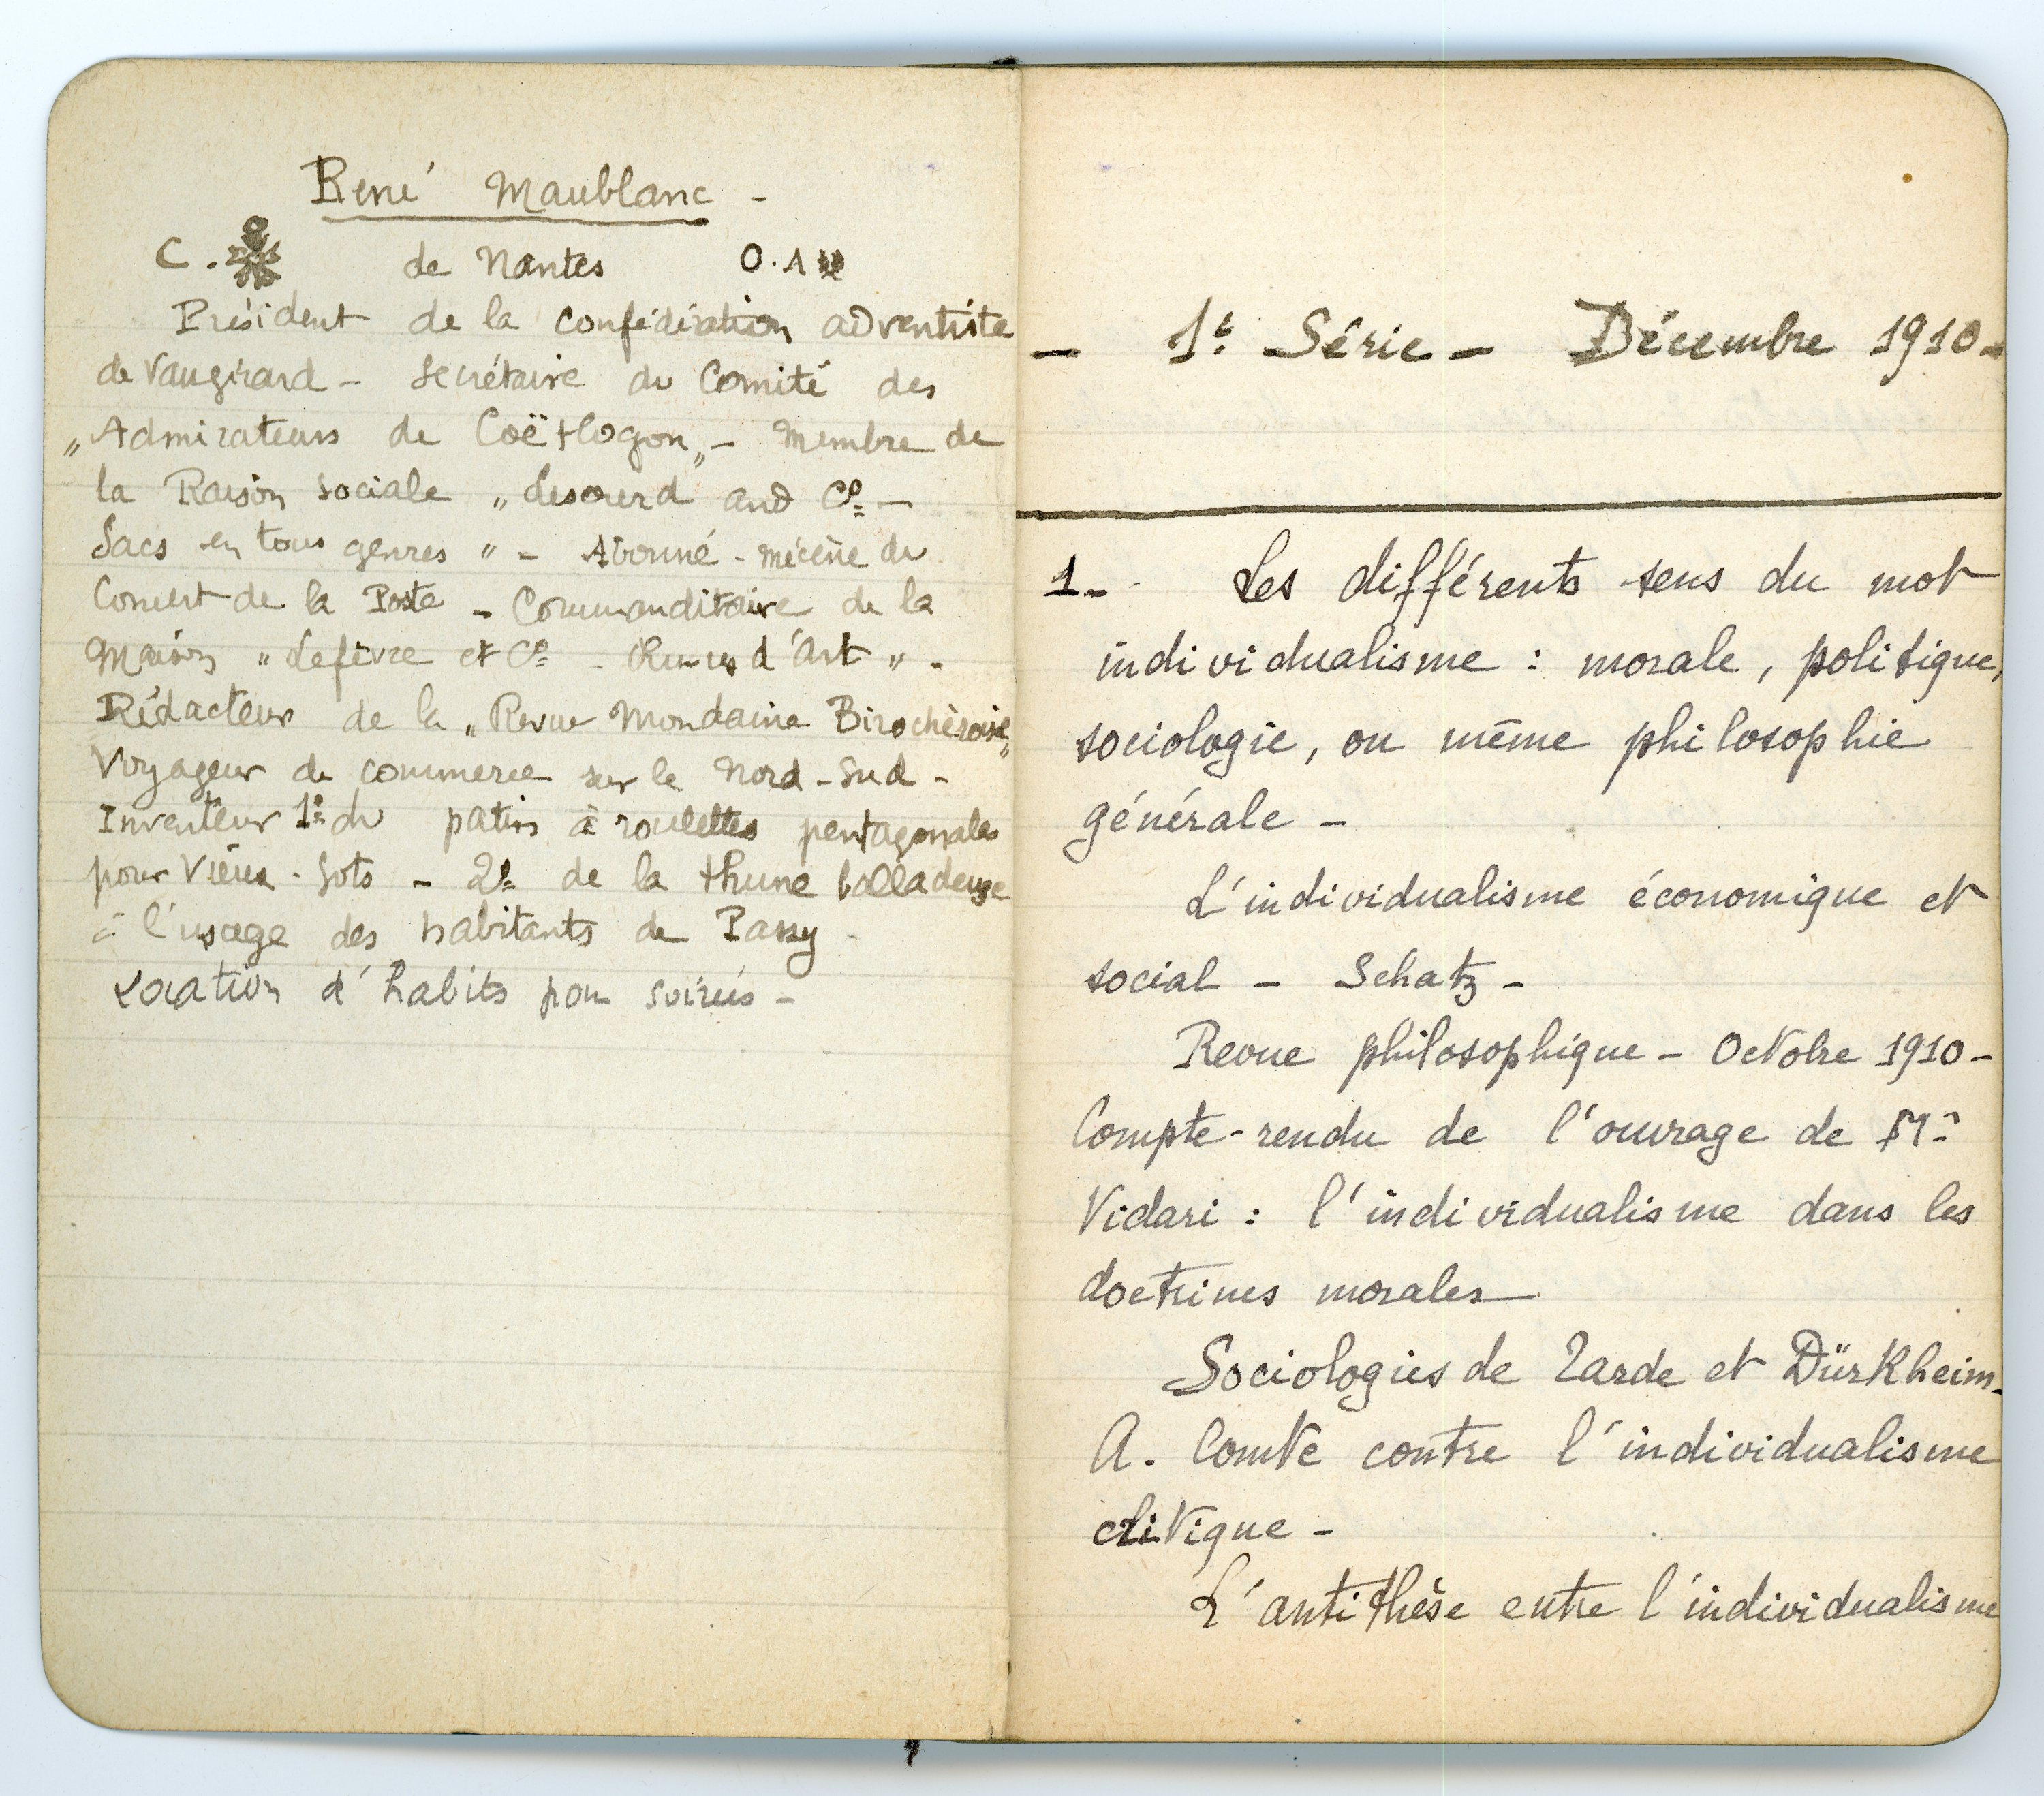 René Maublanc -
C. de Nantes O. A
Président de la Confédération adventiste
de Vaugirard - Secrétaire du Comité des
„Admirateurs de Coëtlogon„ - Membre de
la Raison sociale „Lesourd and Cº -
Sacs en tous genres " - Abonné - mécène du
Concert de la Poste - Commanditaire de la
Maison " Lefèvre et Cº - d'Art „ -
Rédacteur de la „Revue Mondaine Birochèroise„
Voyageur de commerce sur le Nord-Sud -
Inventeur 1º du patin à roulettes pentagonales
pour Vieux-Sots - 2º de la thune balladeuse
à l'usage des habitants de Passy -
Location d'habits pour soirées -
- 1e Série - Décembre 1910 -
1 - Les différents sens du mot
individualisme : morale, politique,
sociologie, ou même philosophie
générale -
L'individualisme économique et
social - Schatz -
Revue philosophique - Octobre 1910 -
Compte-rendu de l'ouvrage de Mr
Vidari : l'individualisme dans les
doctrines morales -
Sociologies de Tarde et Dürkheim -
A. Comte contre l'individualisme
critique -
L'antithèse entre l'individualisme